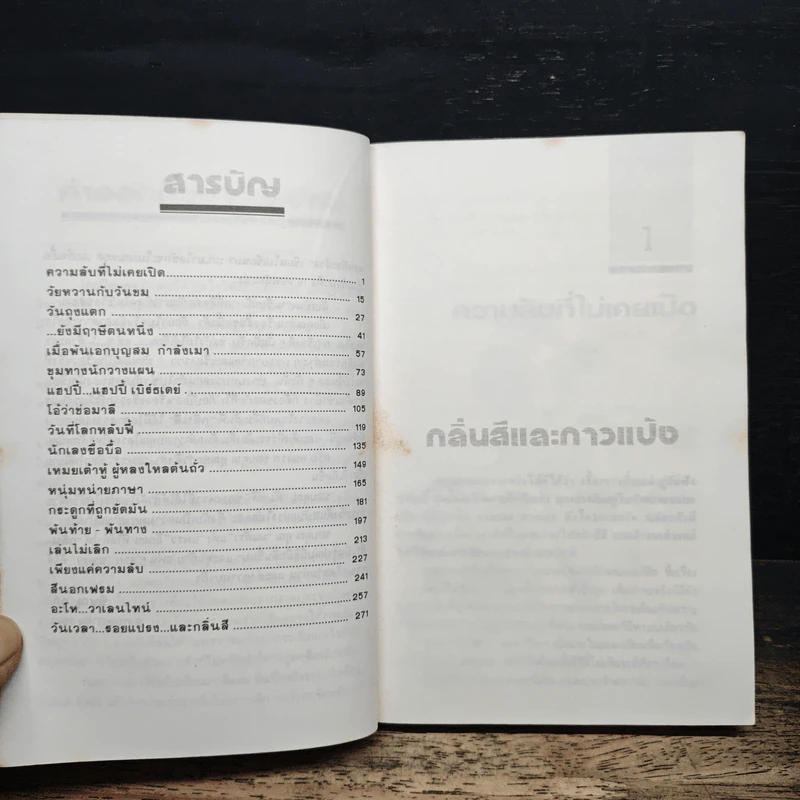 สารบัญ
ความลับที่ไม่เคยเปิด........................................1
วัยหวานกับวันขม........................................15
วันถุงแตก........................................27
...ยังมีฤาษีตนหนึ่ง........................................41
เมื่อพันเอกบุญสม กำลังเมา........................................57
ชุมทางนักวางแผน........................................73
แฮปปี้...แฮปปี้ เบิร์ธเดย์........................................89
โอ้ว่าช่อมาลี........................................105
วันที่โลกหลับฟี้........................................119
นักเลงซื่อบื้อ........................................135
เหมยเต้าหู้ ผู้หลงใหลต้นถั่ว........................................149
หนุ่มหน่ายภาษา........................................165
กระดูกที่ถูกขัดมัน........................................181
พันท้าย - พันทาง........................................197
เล่นไม่เลิก........................................213
เพียงแค่ความลับ........................................227
สีนอกเฟรม........................................241
อะโห...วาเลนไทน์........................................257
วันเวลา...รอยแปรง...และกลิ่นสี........................................271
กลิ่นสีและกาวแป้ง